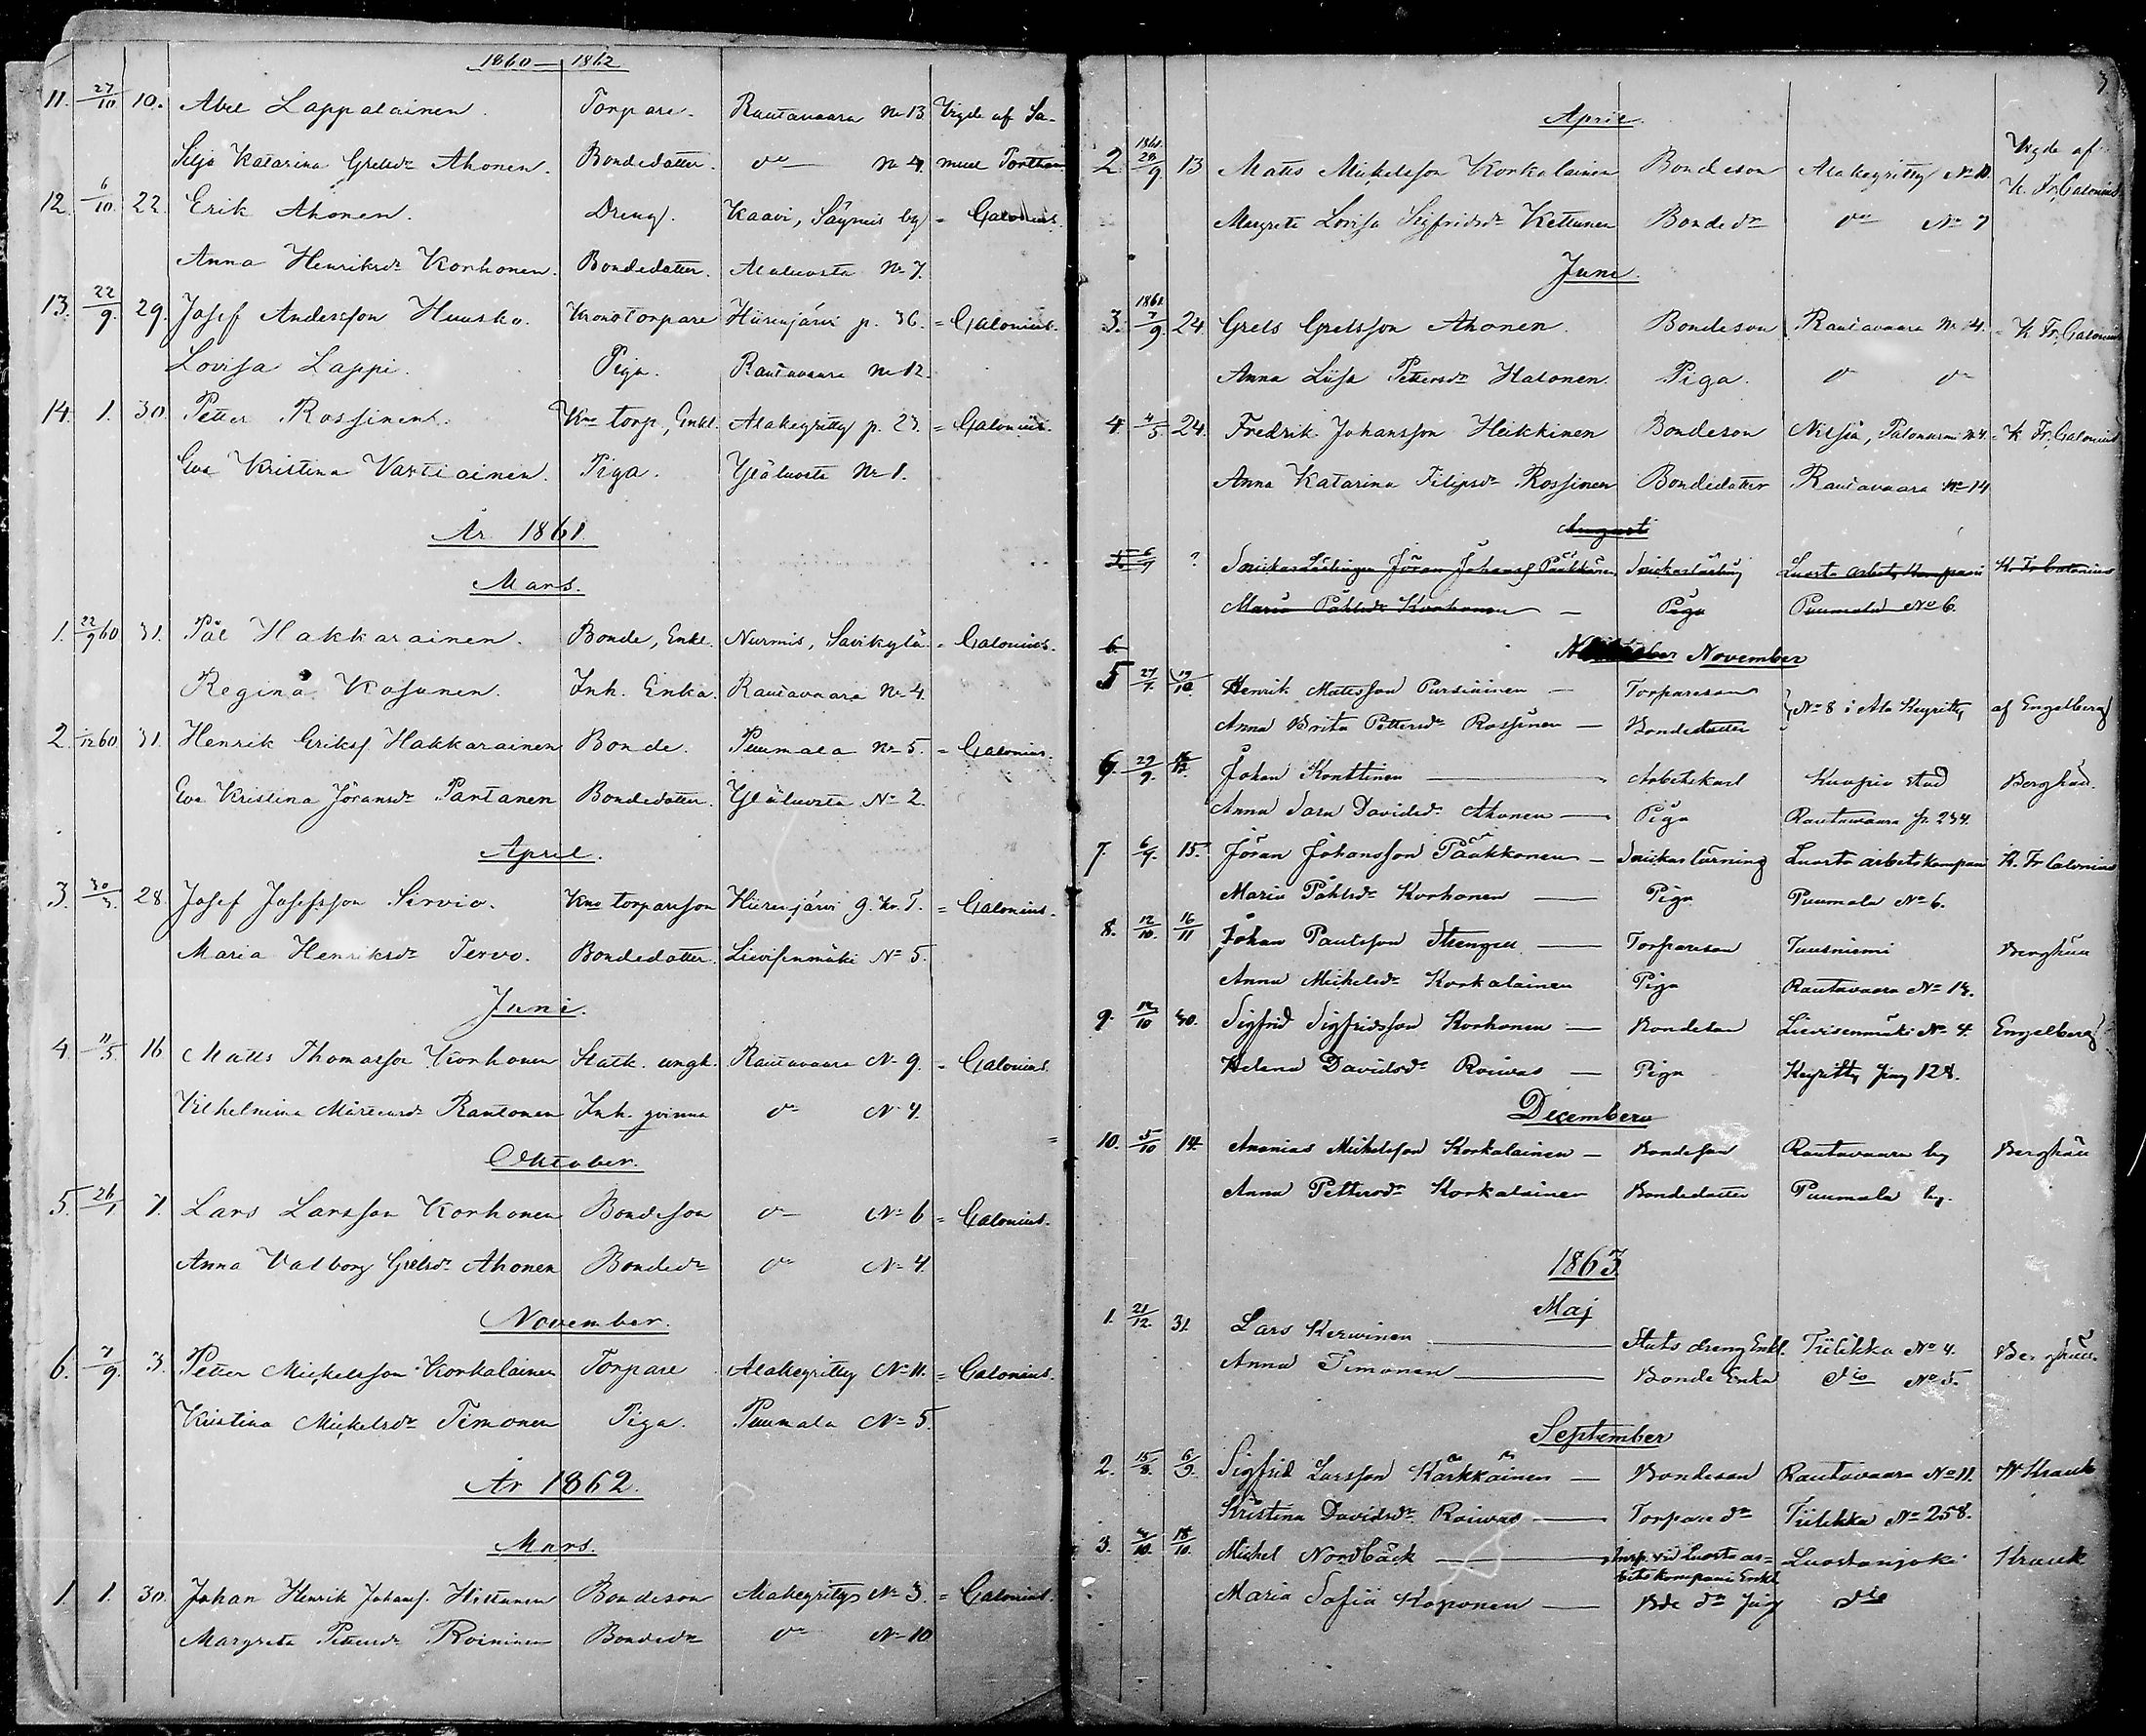 1860 — 1862
11. 27/10 10. Abel Lappalainen. Torpare. Rautavaara No 13 Vigde af Sa-
Silja Katarina Grelsdr Ahonen. Bondedatter. do — No 4. muel Porthan
12. 6/10. 22. Erik Ahonen. Dreng. Kaavi, Säyneis by = Calonius.
Anna Henriksdr Korhonen. Bondedatter. Alaluosta No 7.
13. 22/9. 29. Josef Andersson Huusko. Kronotorpare Hiirenjärvi p. 36. = Calonius.
Lovisa Lappi. Piga. Rautavaara No 12.
14. 1. 30. Petter Rossinen. Kno torp, Enkl. Alakeyritty p. 23 = Calonius.
Eva Kristina Vartiainen. Piga. Yläluosta No 1.
År 1861.
Mars.
1. 22/9 60 31. Pål Hakkarainen. Bonde, Enkl. Nurmis, Savikylä. = Calonius.
Regina Kosunen. Inh. Enka. Rautavaara No 4.
2. /12 60 31. Henrik Eriksf. Hakkarainen Bonde. Puumala No 5. = Calonius.
Eva Kristina Jöransdr Partanen Bondedatter. Yläluosta No 2.
April.
3. 30/3. 28. Josef Josefsson Servio. Kno torparson Hiirenjärvi = Calonius.
Maria Henriksdr Tervo. Bondedatter. Lievisenmäki No 5.
Juni.
4. 11/5. 16 Matts Thomasson Korhonen Statk. ungk. Rautavaara No 9. = Calonius.
Vilhelmina Mårtensdr Rautonen Inh. qvinna do No 4.
Oktober.
5. 26/1 7. Lars Larsson Korhonen Bondeson do — No 6 = Calonius.
Anna Valborg Grelsdr Ahonen Bondedr do No 4.
November.
6. 7/9. 3. Petter Mickelsson Korkalainen Torpare Alakeyritty No 11. = Calonius.
Kristina Mickelsdr Timonen Piga. Puumala No 5.
År 1862.
Mars.
1. 1. 30. Johan Henrik Johansf. Hiltunen Bondeson Alakeyritty No 3. = Calonius.
Margreta Pettersdr Roininen Bondedr do No 10
3
April.
2. 1861. 28/9 13 Matts Mickelsson Korkalainen Bondeson Alakeyritty No 11. Vigde af K. Fr. Calonius
Margreta Lovisa Sigfridsdr Kettunen Bondedr do No 7
Juni.
3. 1861. 7/9. 24. Grels Grelsson Ahonen. Bondeson Rautavaara No 4. = K Fr. Calonius
Anna Liisa Pettersdr Halonen. Piga. do do
4. 4/5 24. Fredrik Johansson Heikkinen Bondeson Nilsiä, Palonurmi No 4. = K Fr. Calonius
Anna Katarina Filipsdr Rossinen Bondedatter Rautavaara No 14
Augusti
5. 6/7 ? Snickarlärlingen Jöran Johansf Pääkkönen Snickarlärling Luosta arbets kompani K. Fr Calonius
Maria Påhlsdr Korhonen — Piga Puumala No 6.
6. November
5 27/7. 19/10. Henrik Mattsson Pursiainen — Torpareson } No 8 i Ala Keyritty af Engelberg
Anna Brita Pettersdr Rossinen — Bondedatter
6. 29/9. Johan Konttinen — Arbetskarl Kuopio stad Berghäll.
Anna Sara Davidsdr Ahonen — Piga Rautavaara p. 234.
7. 6/9. 15. Jöran Johansson Pääkkönen — Snickarlärning Luosta arbetskompan K. Fr Calonius
Maria Påhlsdr Korhonen — Piga Puumala No 6.
8. 12/10. 16/11 Johan Paulsson Thengen — Torpareson Tuusniemi Berghäll
Anna Mickelsdr Korkalainen Piga Rautavaara No 13.
9. 12/10 30. Sigfrid Sigfridsson Korhonen — Bondeson Lievisenmäki No 4. Engelberg
Helena Davidsdr Roivas — Piga Keyritty pag 128.
December
10. 5/10 14. Ananias Mickelsson Korkalainen — Bondeson Rautavaara by Berghäll
Anna Pettersdr Korkalainen Bondedatter Puumala by.
1863
Maj
1. 21/12. 31. Lars Kerwinen — Stats dreng Enkl. Tiilikka No 4. Berghäll.
Anna Timonen — Bonde Enka dio No 5.
September
2. 15/8. 6/9. Sigfrid Larsson Kärkkäinen — Bondeson Rautavaara No 11. W Krank
Kristina Davidsdr Roivas — Torpare dr Tiilikka No 258.
3. 4/10. 18/10. Mickel Nordbäck — Insp. vid Luosta ar- Luostanjoki Krank
bets kompani Enkl
Maria Sofia Koponen — Bde dr Jung dio